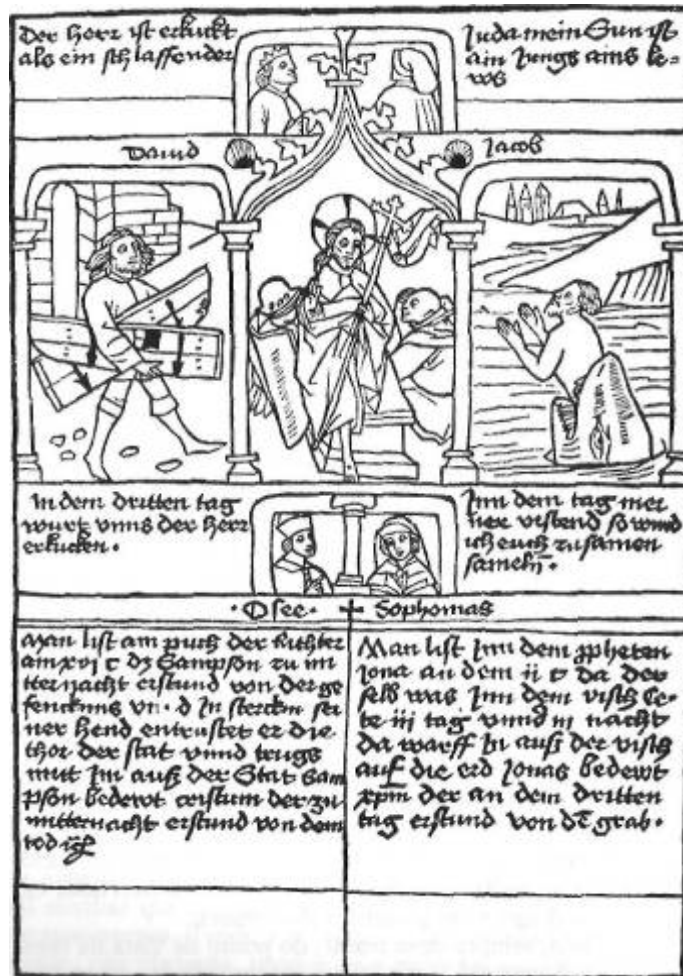 Der herr ist erkuckt
als ein schlaffender
Juda mein Sun ist
ain Jungs ains le-
ws
Dauid
Jacob
In dem dritten tag
wurt vnns der herr
erkucken.
Inn dem tag mei
ner vistend so wird
ich euch zusamen
sameln.
Osee
Sophomas
Man list am puch der Richter
am xvi c dz Sampson zu mi
tternacht erstund von der ge
fencknus vn d In sterckin sei
ner hend entrustet er die
thor der stat vnnd trugs
mitt Im auß der Stat Sam
pson bedewt cristum der zu
mitternacht erstund von dem
tod
Man list Inn dem ppheten
Jona an dem ii c da der
selb was Inn dem visch le-
te iii tag vnnd iii nacht
da warff In auß der visch
auf die erd Jonas bedewt
xpm der an dem dritten
tag erstund von de grab.